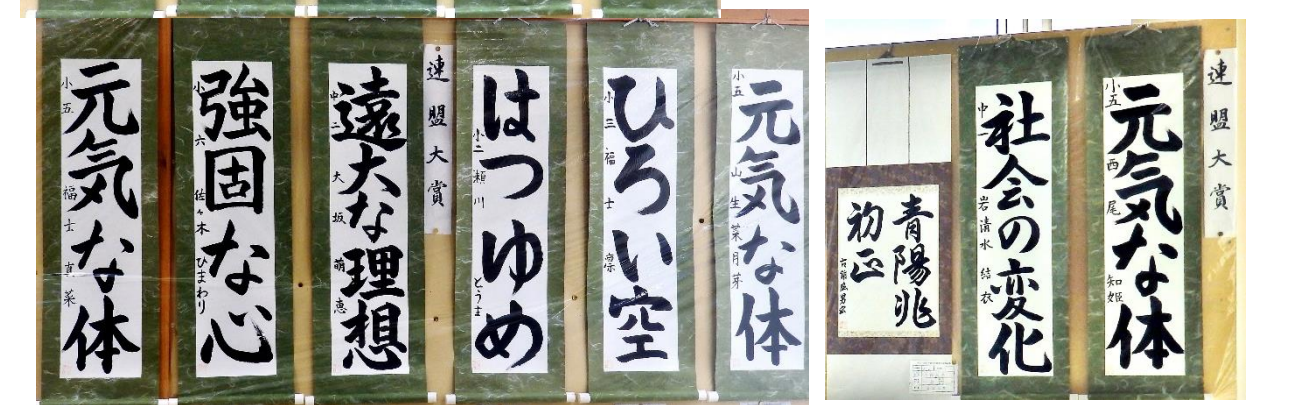 元気な体
小五 福士 真菜
強固な心
小六 佐々木 ひまわり
遠大な理想
中二 大坂 萌恵
連盟大賞
はつゆめ
小二 瀬川 とう士
ひろい空
小三 福士
元気な体
小五 山生 菜月芽
青陽兆
初正
社会の変化
中一 岩清水 結衣
元気な体
小五 西尾 知姫
連盟大賞